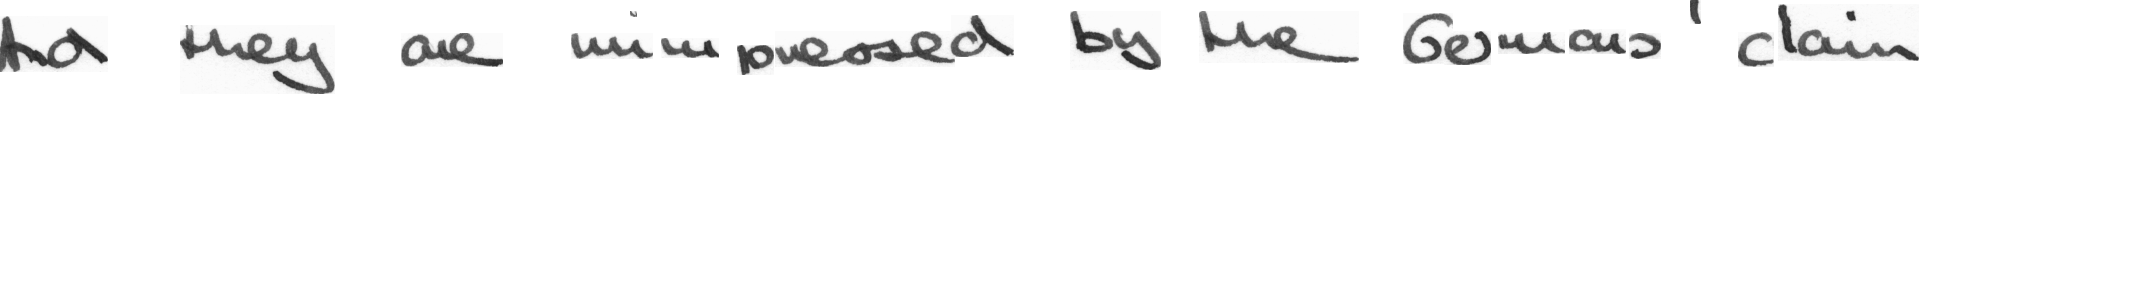 And they are unimpressed by the Germans' claim